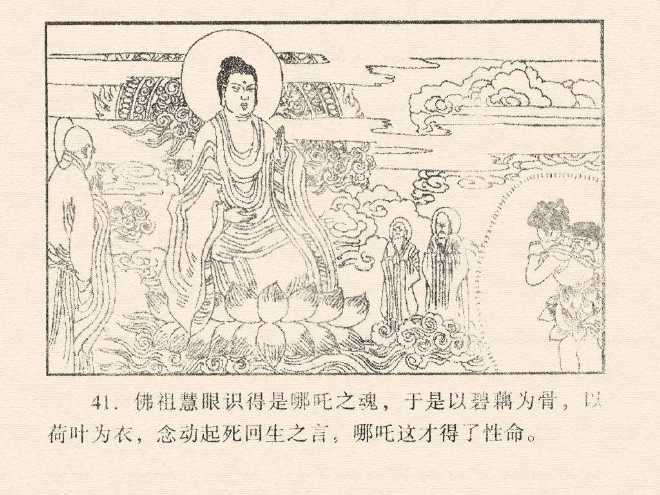 41. 佛祖慧眼识得是哪吒之魂，于是以碧藕为骨，以
荷叶为衣，念动起死回生之言，哪吒这才得了性命。